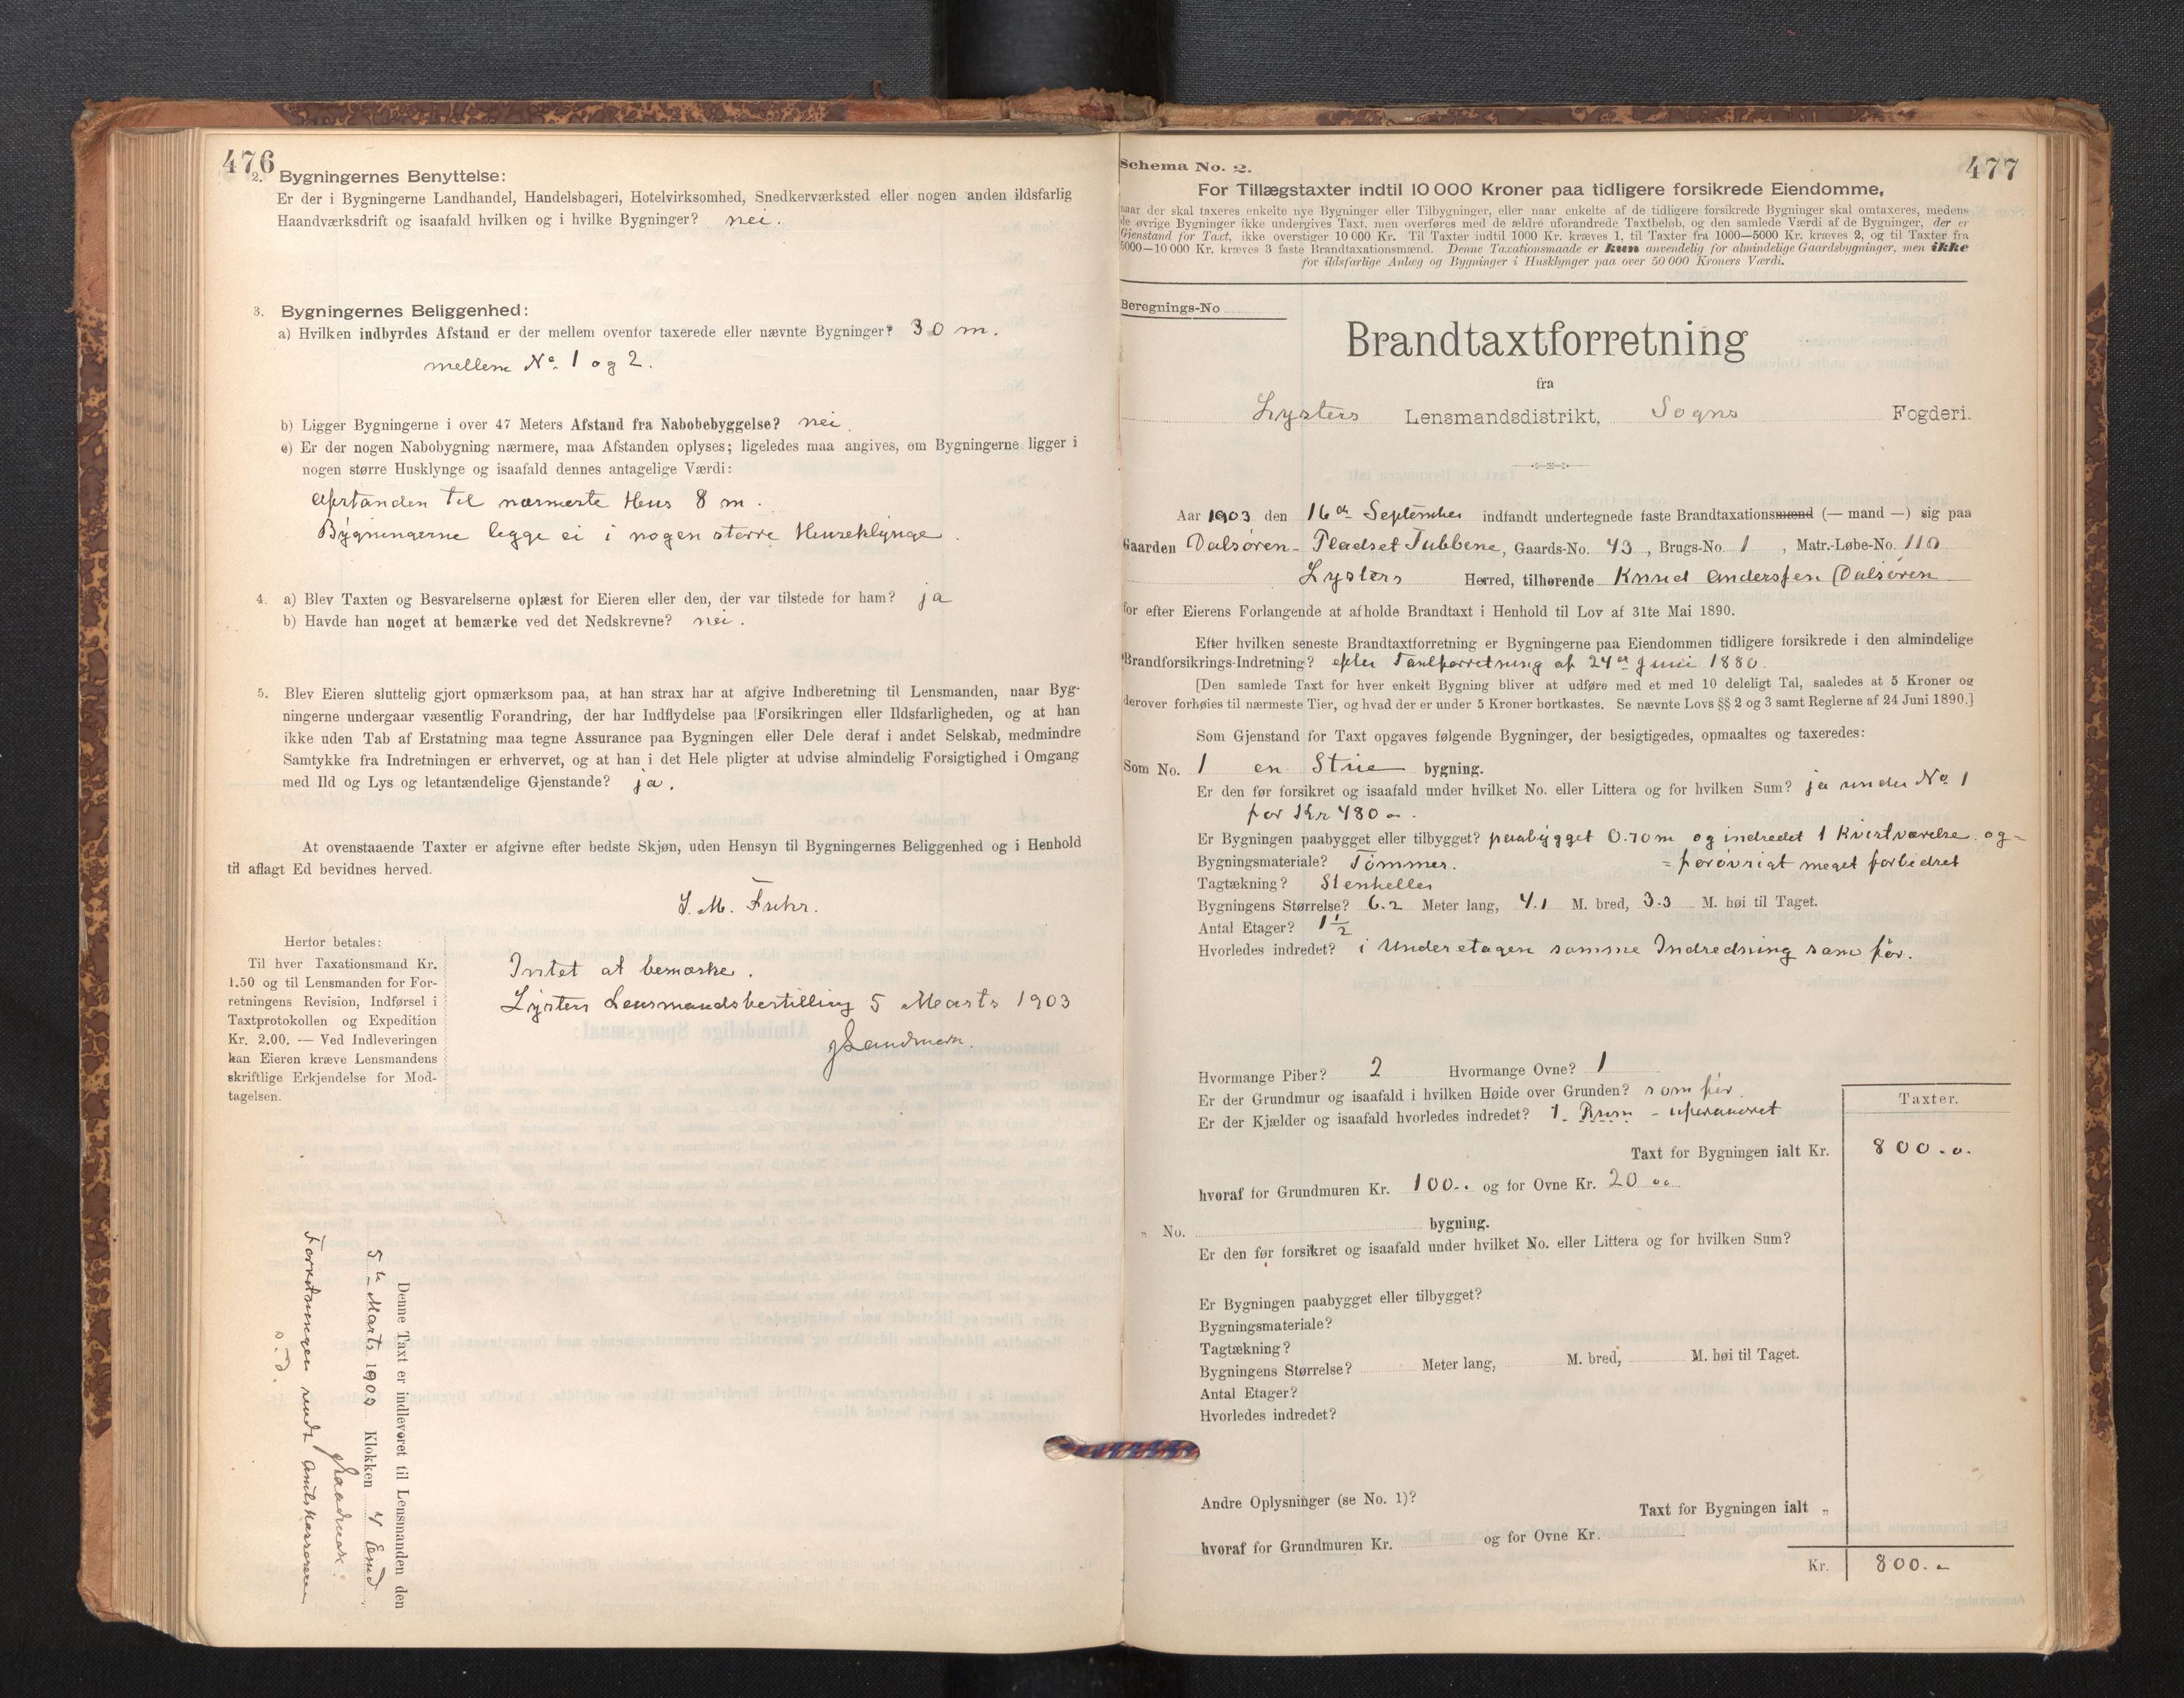 476
2. Bygningernes Benyttelse:
Er der i Bygningerne Landhandel, Handelsbageri, Hotelvirksomhed, Snedkerværksted eller nogen anden ildsfarlig
Haandværksdrift og isaafald hvilken og i hvilke Bygninger? nei.
3. Bygningernes Beliggenhed:
a) Hvilken indbyrdes Afstand er der mellem ovenfor taxerede eller nævnte Bygninger? 30 m.
mellem No. 1 og 2.
b) Ligger Bygningerne i over 47 Meters Afstand fra Nabobebyggelse? nei.
c) Er der nogen Nabobygning nærmere, maa Afstanden oplyses; ligeledes maa angives, om Bygningerne ligger i
nogen større Husklynge og isaafald dennes antagelige Værdi:
Afstanden til nærmeste Hus 8 m.
Bygningerne ligge ei i nogen større Huseklynge.
4. a) Blev Taxten og Besvarelserne oplæst for Eieren eller den, der var tilstede for ham? ja
b) Havde han noget at bemærke ved det Nedskrevne? nei.
5. Blev Eieren sluttelig gjort opmærksom paa, at han strax har at afgive Indberetning til Lensmanden, naar Byg-
ningerne undergaar væsentlig Forandring, der har Indflydelse paa Forsikringen eller Ildsfarligheden, og at han
ikke uden Tab af Erstatning maa tegne Assurance paa Bygningen eller Dele deraf i andet Selskab, medmindre
Samtykke fra Indretningen er erhvervet, og at han i det Hele pligter at udvise almindelig Forsigtighed i Omgang
med Ild og Lys og letantændelige Gjenstande? ja.
At ovenstaaende Taxter er afgivne efter bedste Skjøn, uden Hensyn til Bygningernes Beliggenhed og i Henhold
til aflagt Ed bevidnes herved.
Herfor betales:
Til hver Taxationsmand Kr.
1.50 og til Lensmanden for For-
retningens Revision, Indførsel i
Taxtprotokollen og Expedition
Kr. 2.00. — Ved Indleveringen
kan Eieren kræve Lensmandens
skriftlige Erkjendelse for Mod-
tagelsen.
Intet at bemærke.
Lysters Lensmandsbestilling 5 Marts 1903
Denne Taxt er indleveret til Lensmanden den
5te Marts 1903 Klokken 4 Emd.
Forretningen sendt Amtskassereren
s. d.
Schema No. 2.
477
For Tillægstaxter indtil 10 000 Kroner paa tidligere forsikrede Eiendomme,
naar der skal taxeres enkelte nye Bygninger eller Tilbygninger, eller naar enkelte af de tidligere forsikrede Bygninger skal omtaxeres, medens
de øvrige Bygninger ikke undergives Taxt, men overføres med de ældre uforandrede Taxtbeløb, og den samlede Værdi af de Bygninger, der er
Gjenstand for Taxt, ikke overstiger 10 000 Kr. Til Taxter indtil 1000 Kr. kræves 1, til Taxter fra 1000—5000 Kr. kræves 2, og til Taxter fra
5000—10 000 Kr. kræves 3 faste Brandtaxationsmænd. Denne Taxationsmaade er kun anvendelig for almindelige Gaardsbygninger, men ikke
for ildsfarlige Anlæg og Bygninger i Husklynger paa over 50 000 Kroners Værdi.
Beregnings-No
Brandtaxtforretning
fra
Lysters Lensmandsdistrikt, Sogns Fogderi.
Aar 1903 den 16de September indfandt undertegnede faste Brandtaxationsmænd (— mand —) sig paa
Gaarden Dalsøren - Pladset Tubbene, Gaards-No. 43, Brugs-No. 1, Matr.-Løbe-No. 110
Lysters Herred, tilhørende Knud Anderssen Dalsøren
for efter Eierens Forlangende at afholde Brandtaxt i Henhold til Lov af 31te Mai 1890.
Efter hvilken seneste Brandtaxtforretning er Bygningerne paa Eiendommen tidligere forsikrede i den almindelige
Brandforsikrings-Indretning? efter Taxtforretning af 24de Juni 1880.
[Den samlede Taxt for hver enkelt Bygning bliver at udføre med et med 10 deleligt Tal, saaledes at 5 Kroner og
derover forhøies til nærmeste Tier, og hvad der er under 5 Kroner bortkastes. Se nævnte Lovs §§ 2 og 3 samt Reglerne af 24 Juni 1890.]
Som Gjenstand for Taxt opgaves følgende Bygninger, der besigtigedes, opmaaltes og taxeredes:
Som No. 1 en Stue bygning.
Er den før forsikret og isaafald under hvilket No. eller Littera og for hvilken Sum? ja under No 1
for Kr 480 -.
Er Bygningen paabygget eller tilbygget? paabygget 0.70 m og indredet 1 Kvistværelse og -
Bygningsmateriale? Tømmer. = forøvrigt meget forbedret
Tagtækning? Stenheller
Bygningens Størrelse? 6.2 Meter lang, 4.1 M. bred, 3.3 M. høi til Taget.
Antal Etager? 1½
Hvorledes indredet? i Underetagen samme Indredning som før.
Hvormange Piber? 2 Hvormange Ovne? 1
Er der Grundmur og isaafald i hvilken Høide over Grunden? som før.
Er der Kjælder og isaafald hvorledes indredet? 1 Rum - uforandret
Taxter.
Taxt for Bygningen ialt Kr. 800.-.
hvoraf for Grundmuren Kr. 100.- og for Ovne Kr. 20 --
" No. bygning.
Er den før forsikret og isaafald under hvilket No. eller Littera og for hvilken Sum?
Er Bygningen paabygget eller tilbygget?
Bygningsmateriale?
Tagtækning?
Bygningens Størrelse? Meter lang, M. bred, M. høi til Taget.
Antal Etager?
Hvorledes indredet?
Andre Oplysninger (se No. 1)?
Taxt for Bygningen ialt "
hvoraf for Grundmuren Kr. og for Ovne Kr.
Kr. 800.-